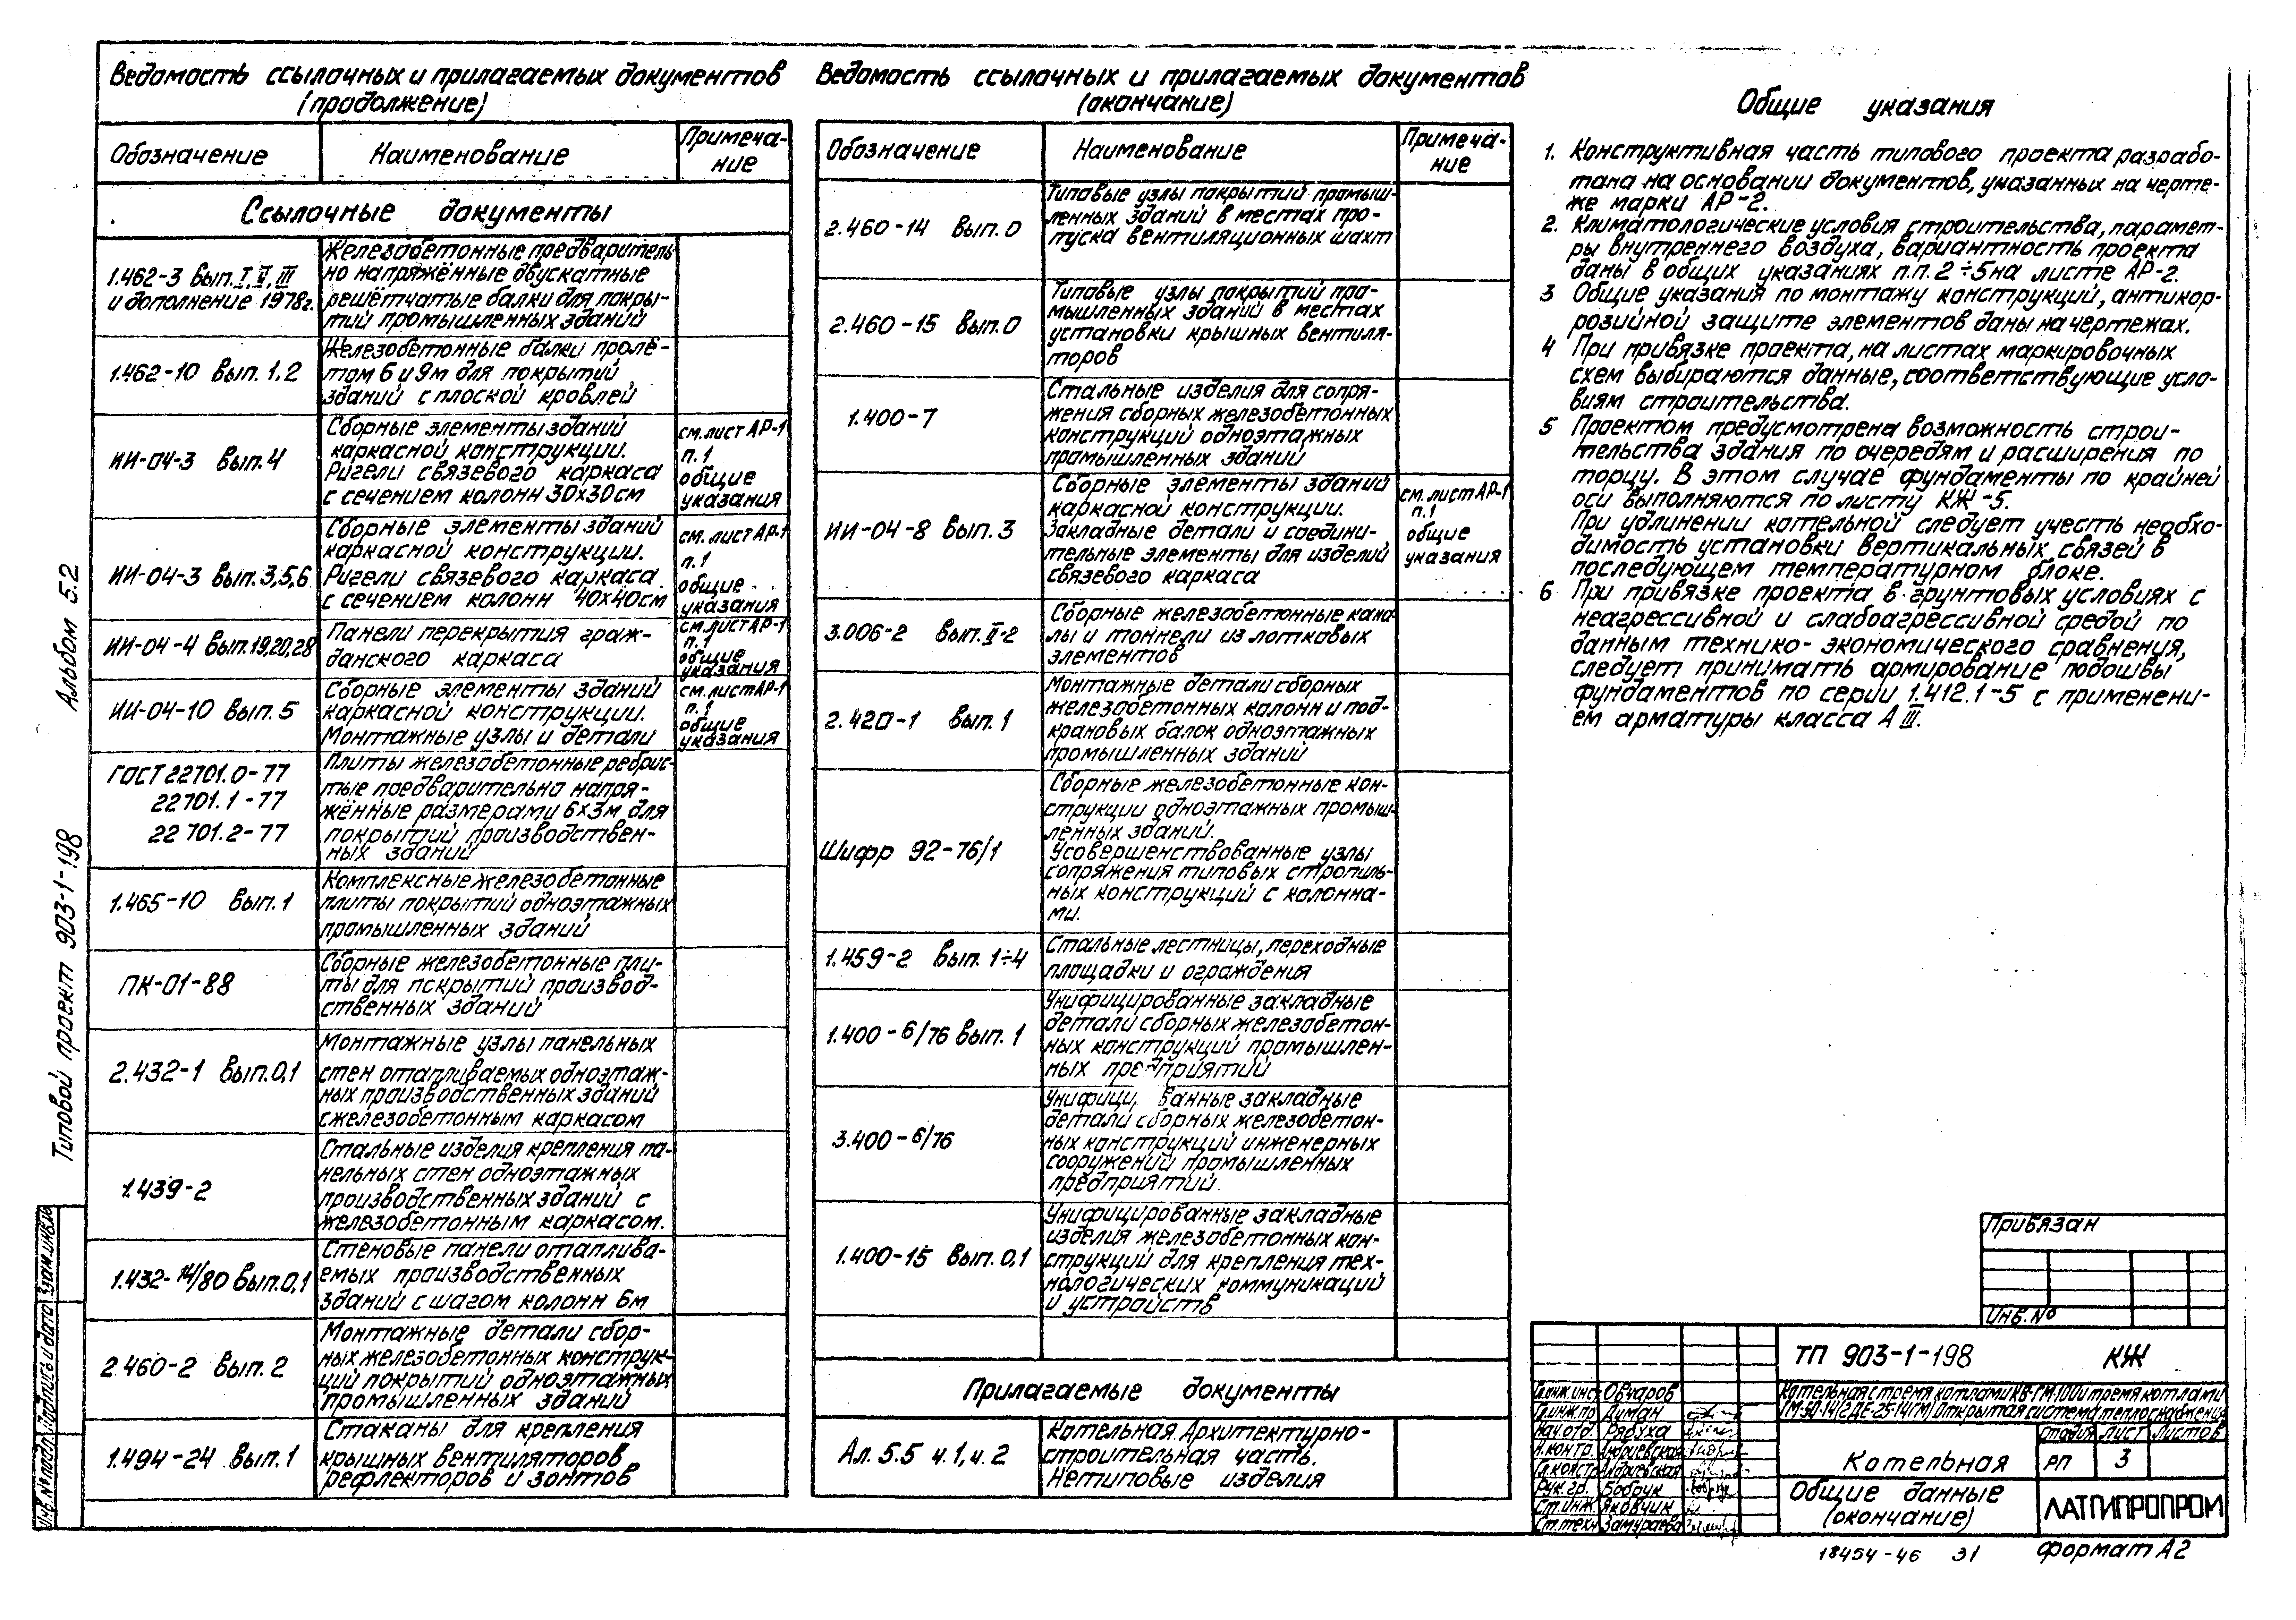 Ведомость ссылочных и прилагаемых документов
(продолжение)
Обозначение
Наименование
Примеча-
ние
Ссылочные документы
1.462-3 Вып. I, II, III
и дополнение 1978г.
Железобетонные предваритель-
но напряжённые двускатные
решётчатые балки для покры-
тий промышленных зданий
1.462-10 Вып. 1,2
Железобетонные балки пролё-
том 6 и 9м для покрытий
зданий с плоской кровлей
ИИ-04-3 Вып.4
Сборные элементы зданий
каркасной конструкции.
Ригели связевого каркаса
с сечением колонн 30х30см
см. лист АР-1
п.1
общие
указания
ИИ-04-3 Вып.3,5,6
Сборные элементы зданий
каркасной конструкции.
Ригели связевого каркаса
с сечением колонн 40х40см
см. лист АР-1
п.1
общие
указания
ИИ-04-4 Вып.19,20,28
Панели перекрытия граж-
данского каркаса
см. лист АР-1
п.1
общие
указания
ИИ-04-10 Вып.5
Сборные элементы зданий
каркасной конструкции.
Монтажные узлы и детали
см. лист АР-1
п.1
общие
указания
ГОСТ 22701.0-77
22701.1-77
22701.2-77
Плиты железобетонные ребрис-
тые предварительно напря-
жённые размерами 6х3м для
покрытий производствен-
ных зданий
1.465-10 Вып.1
Комплексные железобетонные
плиты покрытий одноэтажных
промышленных зданий
ПК-01-88
Сборные железобетонные пли-
ты для покрытий производ-
ственных зданий
2.432-1 Вып.0,1
Монтажные узлы панельных
стен отапливаемых одноэтаж-
ных производственных зданий
с железобетонным каркасом
1.439-2
Стальные изделия крепления па-
нельных стен одноэтажных
производственных зданий с
железобетонным каркасом.
1.432-14/80 Вып.0,1
Стеновые панели отаплива-
емых производственных
зданий с шагом колонн 6м
2.460-2 Вып.2
Монтажные детали сбор-
ных железобетонных конструк-
ций покрытий одноэтажных
промышленных зданий
1.494-24 Вып.1
Стаканы для крепления
крышных вентиляторов
рефлекторов и зонтов
Ведомость ссылочных и прилагаемых документов
(окончание)
Обозначение
Наименование
Примеча-
ние
2.460-14 Вып.0
Типовые узлы покрытий промыш-
ленных зданий в местах про-
пуска вентиляционных шахт
2.460-15 Вып.0
Типовые узлы покрытий про-
мышленных зданий в местах
установки крышных вентиля-
торов
1.400-7
Стальные изделия для сопря-
жения сборных железобетонных
конструкций одноэтажных
промышленных зданий
ИИ-04-8 Вып.3
Сборные элементы зданий
каркасной конструкции.
Закладные детали и соедини-
тельные элементы для изделий
связевого каркаса
см. лист АР-1
п.1
общие
указания
3.006-2 Вып.II-2
Сборные железобетонные кана-
лы и тоннели из лотковых
элементов
2.420-1 Вып.1
Монтажные детали сборных
железобетонных колонн и под-
крановых балок одноэтажных
промышленных зданий
Шифр 92-76/1
Сборные железобетонные кон-
струкции одноэтажных промыш-
ленных зданий.
Усовершенствованные узлы
сопряжения типовых стропиль-
ных конструкций с колонна-
ми.
1.459-2 Вып. 1÷4
Стальные лестницы, переходные
площадки и ограждения
1.400-6/76 Вып.1
Унифицированные закладные
детали сборных железобетон-
ных конструкций промышлен-
ных предприятий
3.400-6/76
Унифици ванные закладные
детали сборных железобетон-
ных конструкций инженерных
сооружений промышленных
предприятий.
1.400-15 Вып.0,1
Унифицированные закладные
изделия железобетонных кон-
струкций для крепления тех-
нологических коммуникаций
и устройств
Прилагаемые документы
Ал.5.5 ч.1, ч.2
Котельная. Архитектурно-
строительная часть.
Нетиповые изделия
Общие указания
1. Конструктивная часть типового проекта разрабо-
тана на основании документов, указанных на черте-
же марки АР-2.
2. Климатологические условия строительства, парамет-
ры внутреннего воздуха, вариантность проекта
даны в общих указаниях п.п. 2÷5 на листе АР-2.
3 Общие указания по монтажу конструкций, антикор-
розийной защите элементов даны на чертежах.
4 При привязке проекта, на листах маркировочных
схем выбираются данные, соответствующие усло-
виям строительства.
5 Проектом предусмотрена возможность строи-
тельства здания по очередям и расширения по
торцу. В этом случае фундаменты по крайней
оси выполняются по листу КЖ-5.
При удлинении котельной следует учесть необхо-
димость установки вертикальных связей в
последующем температурном блоке.
6 При привязке проекта в грунтовых условиях с
неагрессивной и слабоагрессивной средой по
данным технико-экономического сравнения,
следует принимать армирование подошвы
фундаментов по серии 1.412.1-5 с применени-
ем арматуры класса А III.
Привязан
Инв.№
ТП 903-1-198 КЖ
Котельная с тремя котлами КВ-ГМ-100 и тремя котлами
ГМ-50-14 (2ДЕ-25-14ГМ) Открытая система теплоснабжения
Котельная
Стадия Лист Листов
РП 3
Общие данные
(окончание)
ЛАТГИПРОПРОМ
Гл.инж.инс. Овчаров
Гл.инж.пр Думан
Нач.отд. Рябуха
Н.контр. Андриевская
Гл.констр Андриевская
Рук.гр. Бобрик
Ст.инж. Яковчик
Ст.техн Замураева
18454-46 31
Формат А2
Альбом 5.2
Типовой проект 903-1-198
Инв.№ подл. Подпись и дата Взам.инв.№